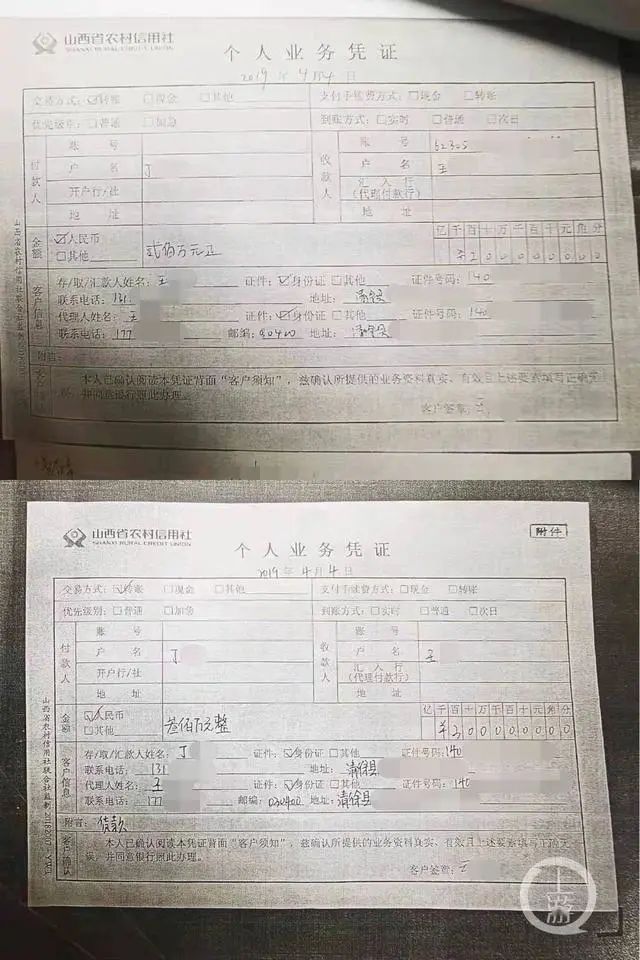 山西省农村信用社
SHANXI RURAL CREDIT UNION
个人业务凭证
2019 年 4 月 4 日
交易方式:☑转账 □现金 □其他 支付手续费方式:□现金 □转账
优先级别:□普通 □加急 到账方式:□实时 □普通 □次日
付款人 账号 收款人 账号 62305
户名 丁 户名 王
开户行/社 汇入行(代理付款行)
地址 地址
金额 ☑人民币 □其他 贰佰万元正 亿千百十万千百十元角分
¥200000000
客户信息
存/取/汇款人姓名:王 证件:☑身份证 □其他 证件号码:140
联系电话:131 地址:清徐县
代理人姓名:王 证件:☑身份证 □其他 证件号码:140
联系电话:177 邮编: 地址:清徐县
附言:
本人已确认阅读本凭证背面“客户须知”,兹确认所提供的业务资料真实、有效且上述要素填写正确无误,并同意银行照此办理。
客户签章:王
山西省农村信用社联合社监制
山西省农村信用社
SHANXI RURAL CREDIT UNION
附件
个人业务凭证
2019 年 4 月 4 日
交易方式:☑转账 □现金 □其他 支付手续费方式:□现金 □转账
优先级别:□普通 □加急 到账方式:□实时 □普通 □次日
付款人 账号 收款人 账号
户名 丁 户名 王
开户行/社 汇入行(代理付款行)
地址 地址
金额 ☑人民币 □其他 叁佰万元整 亿千百十万千百十元角分
¥300000000
客户信息
存/取/汇款人姓名:丁 证件:☑身份证 □其他 证件号码:140
联系电话:131 地址:清徐县
代理人姓名:王 证件:☑身份证 □其他 证件号码:140
联系电话:177 邮编:030400 地址:清徐县
附言:货款
客户确认
本人已确认阅读本凭证背面“客户须知”,兹确认所提供的业务资料真实、有效且上述要素填写正确无误,并同意银行照此办理。
客户签章:王
山西省农村信用社联合社监制
上游